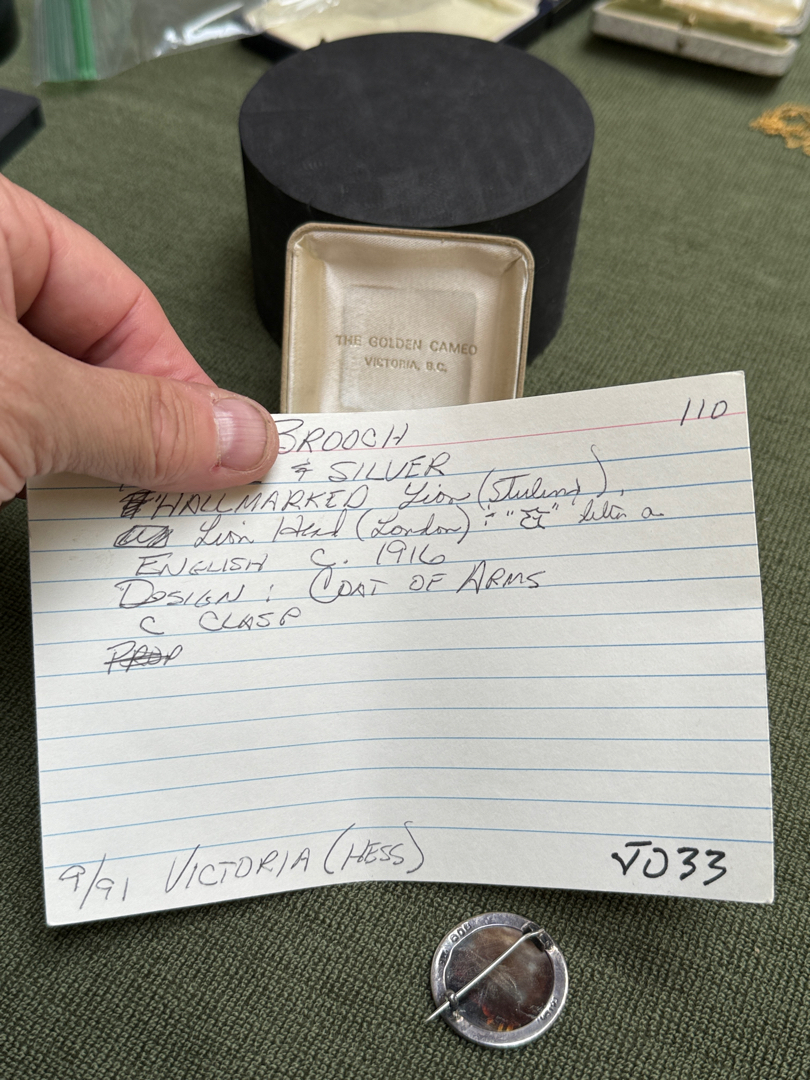 THE GOLDEN CAMEO
VICTORIA, B.C.
BROOCH 110
& SILVER
HALLMARKED Lion (Sterling),
Lion Head (London); "a" letter a
ENGLISH C. 1916
DESIGN: COAT OF ARMS
C CLASP
PROP
9/91 VICTORIA (HESS)
JO33